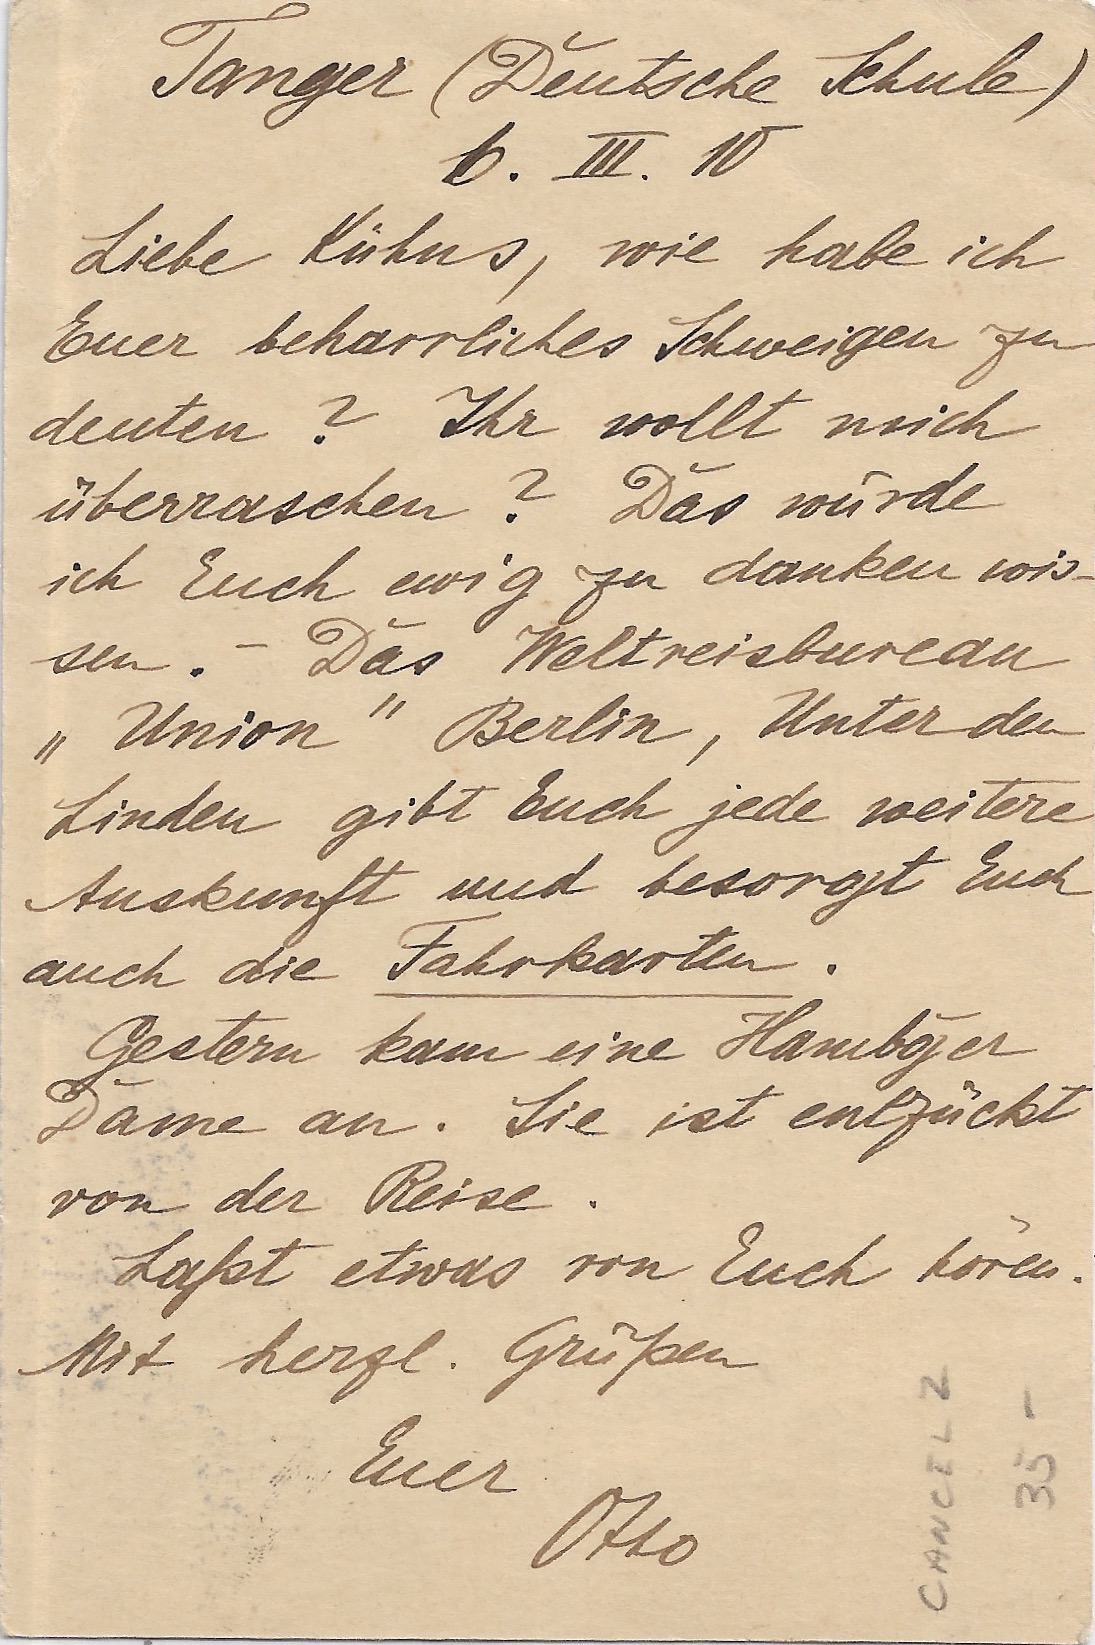 Tanger (Deutsche Schule)
6. III. 10
Liebe Kühns, wie habe ich
Euer beharrliches Schweigen zu
deuten? Ihr wollt mich
überraschen? Das würde
ich Euch ewig zu danken wis-
sen. - Das Weltreisbureau
„Union" Berlin, Unter den
Linden gibt Euch jede weitere
Auskunft und besorgt Euch
auch die Fahrkarten.
Gestern kam eine Hambg̅er
Dame an. Sie ist entzückt
von der Reise.
Laßt etwas von Euch hören.
Mit herzl. Grüßen
Euer
Otto
CANCEL 2
35 -